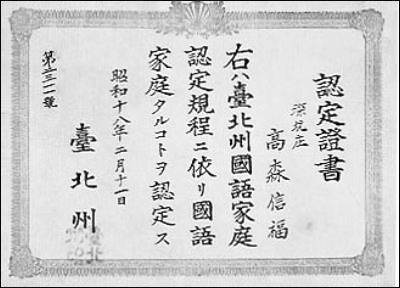 認定證書
深坑庄
高森信福
右ハ臺北州國語家庭
認定規程ニ依リ國語
家庭タルコトヲ認定ス
昭和十八年二月十一日
臺北州
第二三一一號